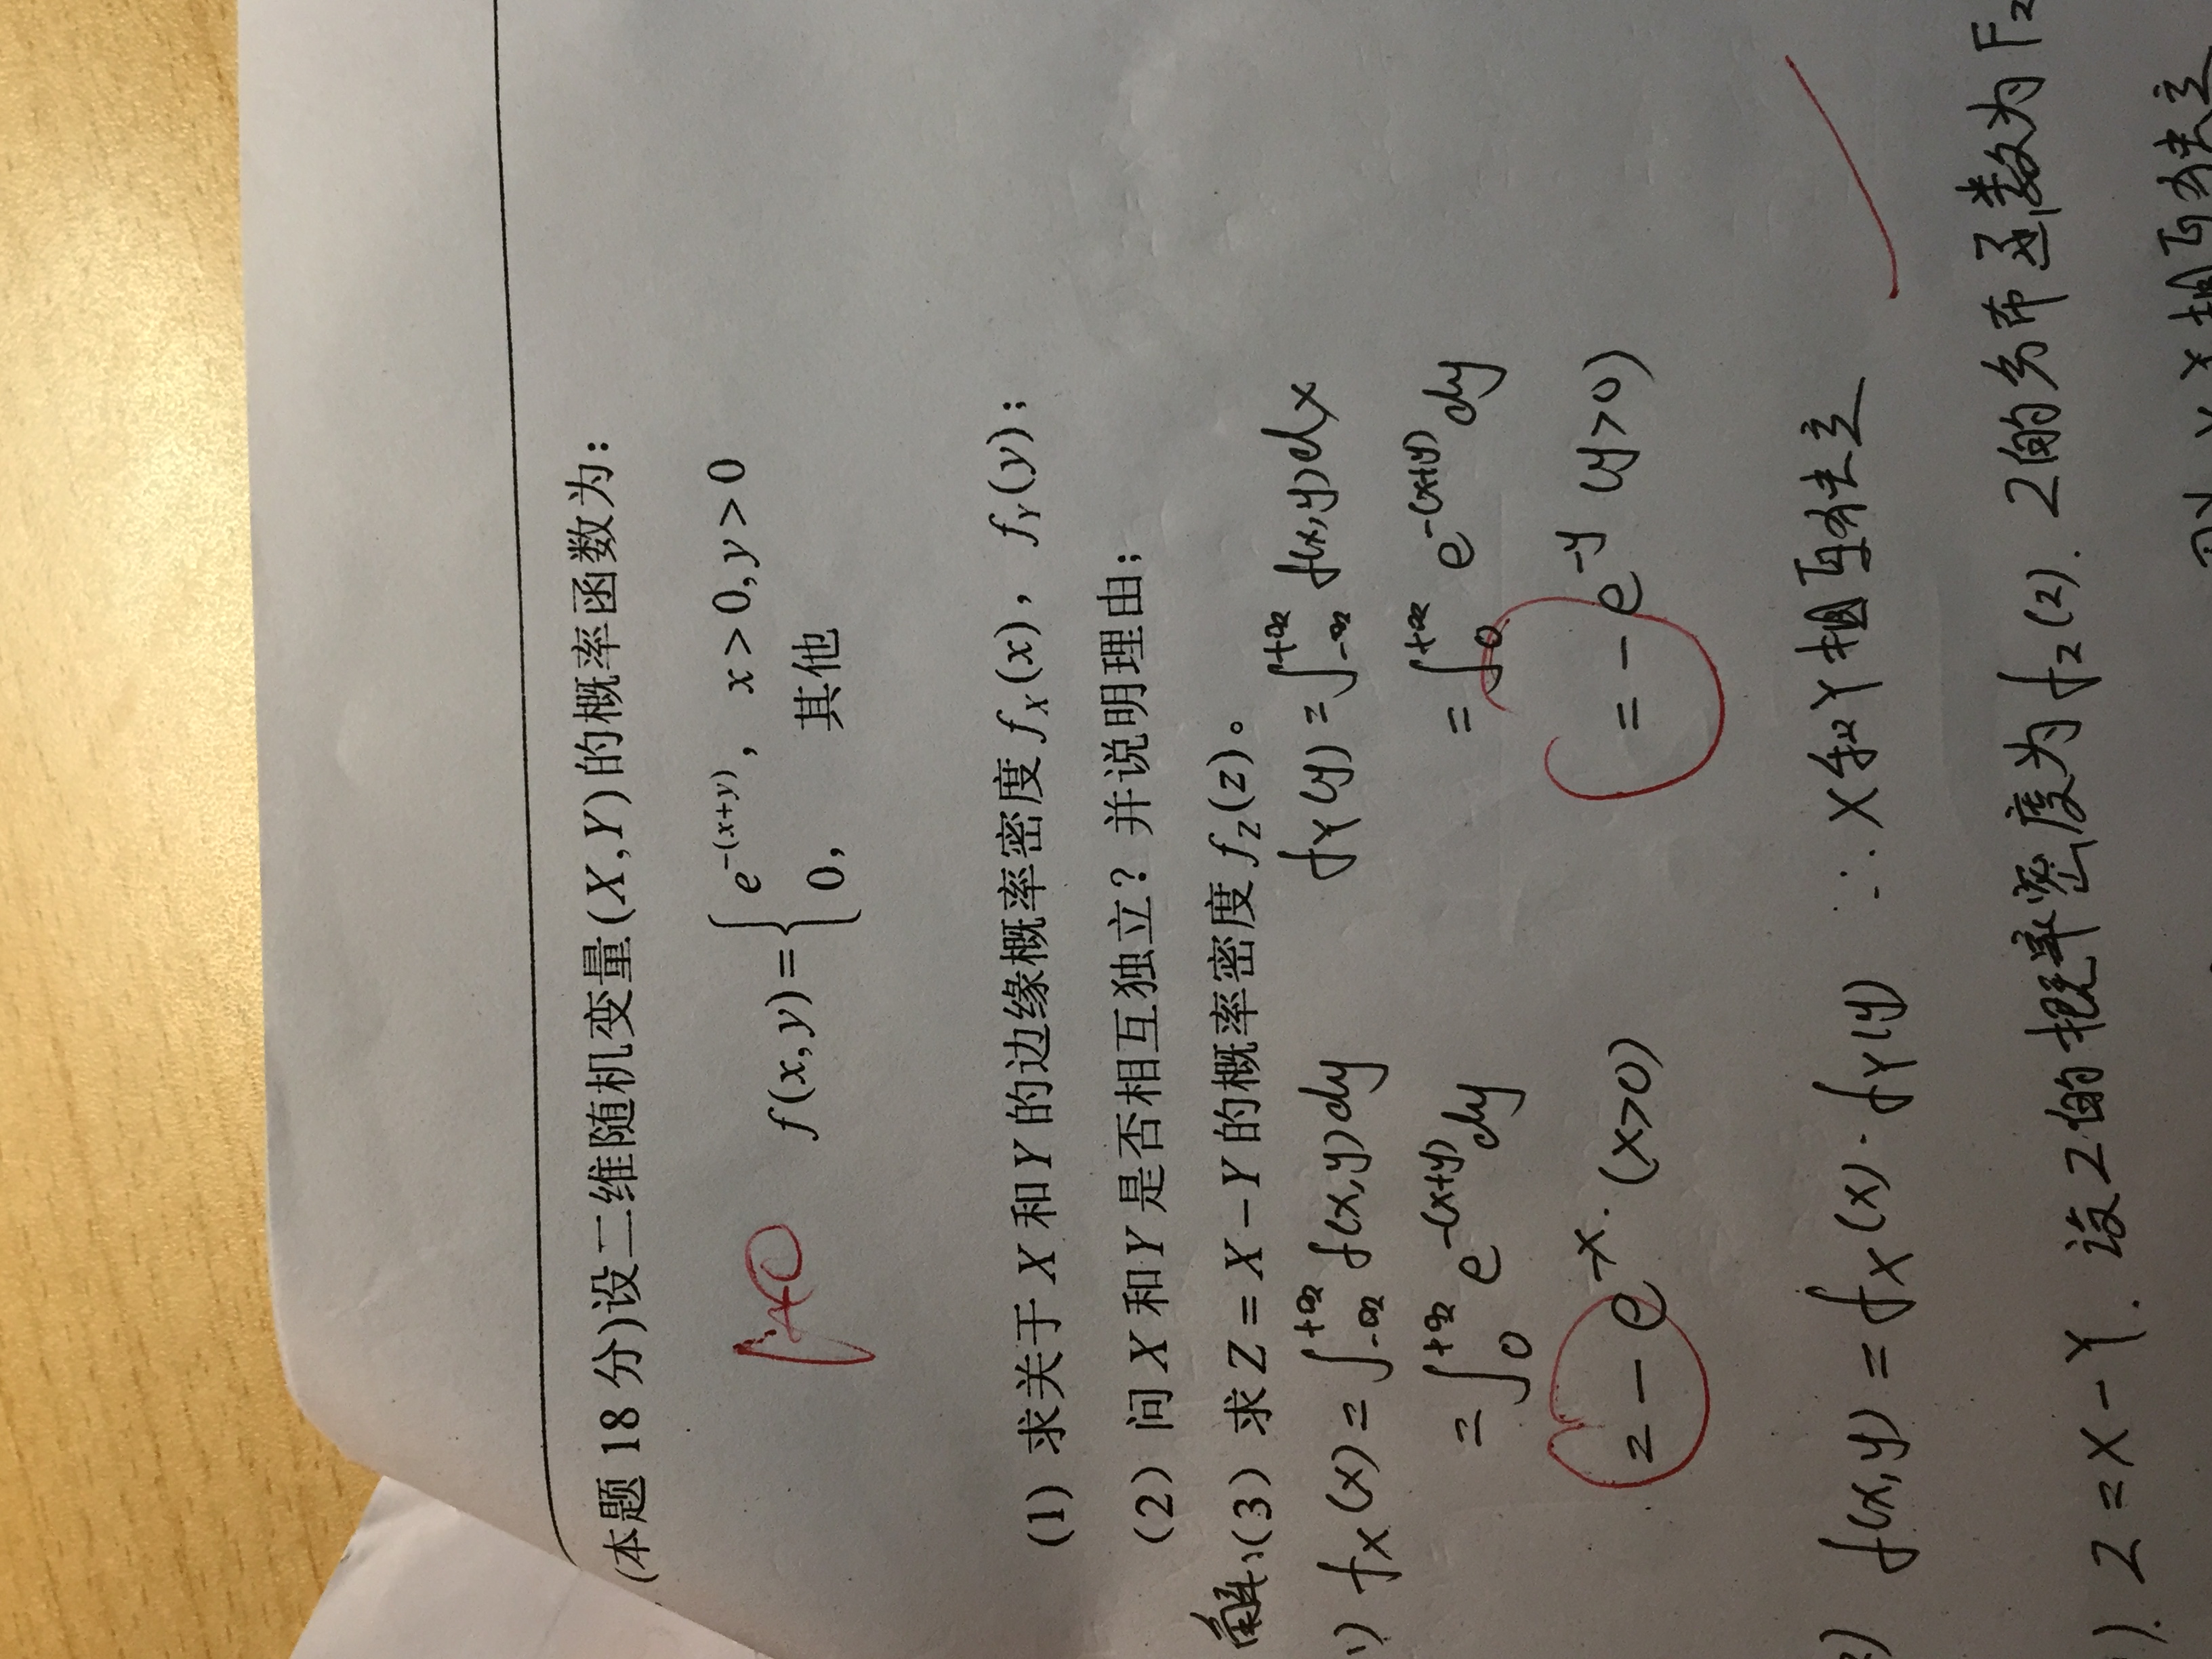 (本题 18 分)设二维随机变量(X,Y)的概率函数为:
f(x,y)={ e^{-(x+y)}, x>0,y>0
0, 其他
(1) 求关于 X 和 Y 的边缘概率密度 f_X(x), f_Y(y);
(2) 问 X 和 Y 是否相互独立? 并说明理由;
解:(3) 求 Z = X - Y 的概率密度 f_Z(z)。
1) f_X(x) = ∫_{-∞}^{+∞} f(x,y)dy f_Y(y) = ∫_{-∞}^{+∞} f(x,y)dx
= ∫_0^{+∞} e^{-(x+y)}dy = ∫_0^{+∞} e^{-(x+y)}dy
= -e^{-x}. (x>0) = -e^{-y} (y>0)
) f(x,y) = f_X(x)·f_Y(y) ∴ X和Y相互独立
). Z = X - Y. 设Z的概率密度为f_Z(z). Z的分布函数为F_Z
相互独立